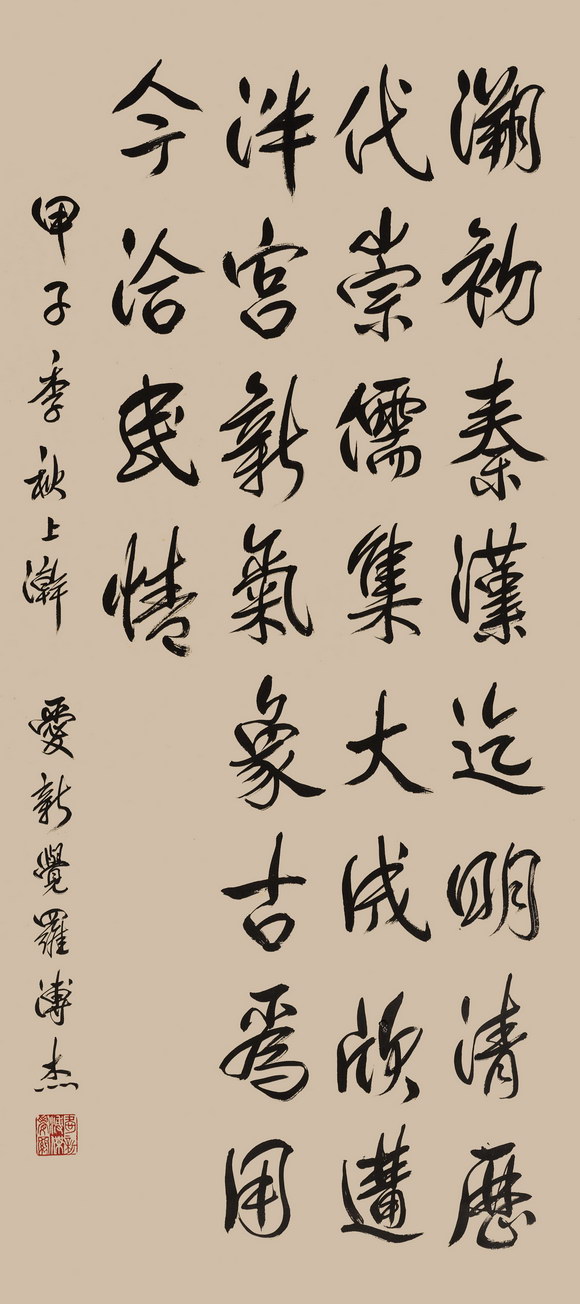 溯初秦漢迄明清歷
代崇儒集大成欣遘
泮宮新氣象古爲用
今洽民情
甲子季秋上澣 愛新覺羅溥杰